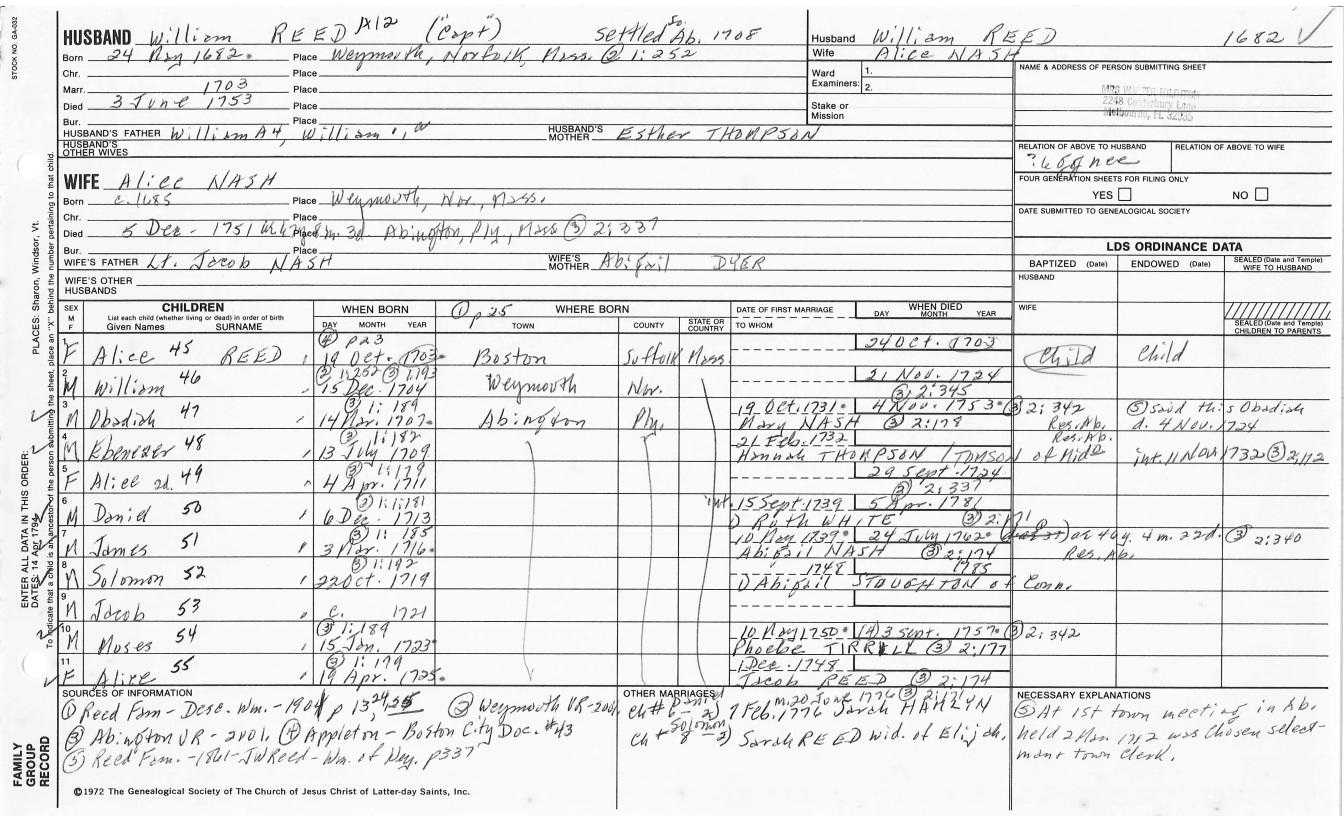 STOCK NO. GA-032
HUSBAND William REED A12 ("Capt") Settled So. Ab. 1708
Born 24 May 1682. Place Weymouth, Norfolk, Mass. ② 1:252
Chr. Place
Marr. 1703 Place
Died 3 June 1753 Place
Bur. Place
HUSBAND'S FATHER William A4, William HUSBAND'S MOTHER Esther THOMPSON
HUSBAND'S OTHER WIVES
Husband William REED 1682 ✓
Wife Alice NASH
Ward Examiners: 1.
2.
Stake or Mission
NAME & ADDRESS OF PERSON SUBMITTING SHEET
2248 Canterbury Lane
Melbourne, FL
RELATION OF ABOVE TO HUSBAND RELATION OF ABOVE TO WIFE
FOUR GENERATION SHEETS FOR FILING ONLY
YES NO
DATE SUBMITTED TO GENEALOGICAL SOCIETY
WIFE Alice NASH
Born c. 1685 Place Weymouth, Nor., Mass.
Chr. Place
Died 5 Dec - 1751 Place Abington, Ply., Mass ③ 2:337
Bur. Place
WIFE'S FATHER Lt. Jacob NASH WIFE'S MOTHER Abigail DYER
WIFE'S OTHER HUSBANDS
LDS ORDINANCE DATA
BAPTIZED (Date) ENDOWED (Date) SEALED (Date and Temple) WIFE TO HUSBAND
HUSBAND
WIFE
SEALED (Date and Temple) CHILDREN TO PARENTS
SEX M F CHILDREN WHEN BORN ① p25 WHERE BORN DATE OF FIRST MARRIAGE WHEN DIED
List each child (whether living or dead) in order of birth
Given Names SURNAME DAY MONTH YEAR TOWN COUNTY STATE OR COUNTRY TO WHOM DAY MONTH YEAR
④ p23
1 F Alice 45 REED 19 Oct. 1703 Boston Suffolk Mass. 24 Oct. 1703 Child Child
② 1:252 ③ 1:193
2 M William 46 15 Dec. 1704 Weymouth Nor. 21 Nov. 1724
③ 1:189 ③ 2:345
3 M Obadiah 47 14 Mar. 1707. Abington Ply. 19 Oct. 1731. 4 Nov. 1753. ③ 2:342 ⑤ said this Obadiah
Mary NASH ③ 2:178 Res. Ab. d. 4 Nov. 1724
③ 1:182
4 M Ebenezer 48 13 July 1709 21 Feb. 1732 Res. Ab.
Hannah THOMPSON / TOMSON of Mid. int. 11 Nov 1732 ③ 2:112
③ 1:179
5 F Alice 2d. 49 4 Apr. 1711 29 Sept. 1724
③ 1:181 ③ 2:337
6 M Daniel 50 6 Dec. 1713 int. 15 Sept. 1739 5 Apr. 1781
1) Ruth WHITE
③ 1:185
7 M James 51 3 Mar. 1716. 10 May 1739. 24 July 1762. ae 46y. 4m. 22d. ③ 2:340
Abigail NASH ③ 2:174 Res. Ab.
③ 1:192
8 M Solomon 52 22 Oct. 1719 1748 1785
1) Abigail STOUGHTON of Conn.
9 M Jacob 53 c. 1721
③ 1:189
10 M Moses 54 15 Jan. 1723. 10 May 1750. 3 Sept. 1757. ③ 2:342
Phoebe TIRRELL ③ 2:177
③ 1:179
11 F Alice 55 19 Apr. 1725. 1 Dec. 1748
Jacob REED ③ 2:174
SOURCES OF INFORMATION
① Reed Fam - Desc. Wm. - 1904 p 13, 24, 25 ② Weymouth VR - 2001.
③ Abington VR - 2001, ④ Appleton - Boston City Doc. #43
⑤ Reed Fam. - 1861 - JWReed - Wm. of Wey. p337
OTHER MARRIAGES
m. 20 June 1776 ③
Ch # 6 Daniel - 2) 7 Feb. 1776 Sarah HAMLYN
Ch # 8 Solomon - 2) Sarah REED wid. of Elijah.
NECESSARY EXPLANATIONS
⑤ At 1st town meeting in Ab.
held 2 Mar. 1712 was chosen select-
man + town Clerk.
©1972 The Genealogical Society of The Church of Jesus Christ of Latter-day Saints, Inc.
FAMILY GROUP RECORD
ENTER ALL DATA IN THIS ORDER:
DATES: 14 Apr 1794
PLACES: Sharon, Windsor, Vt.
To indicate that a child is an ancestor of the person submitting the sheet, place an "X" behind the number pertaining to that child.